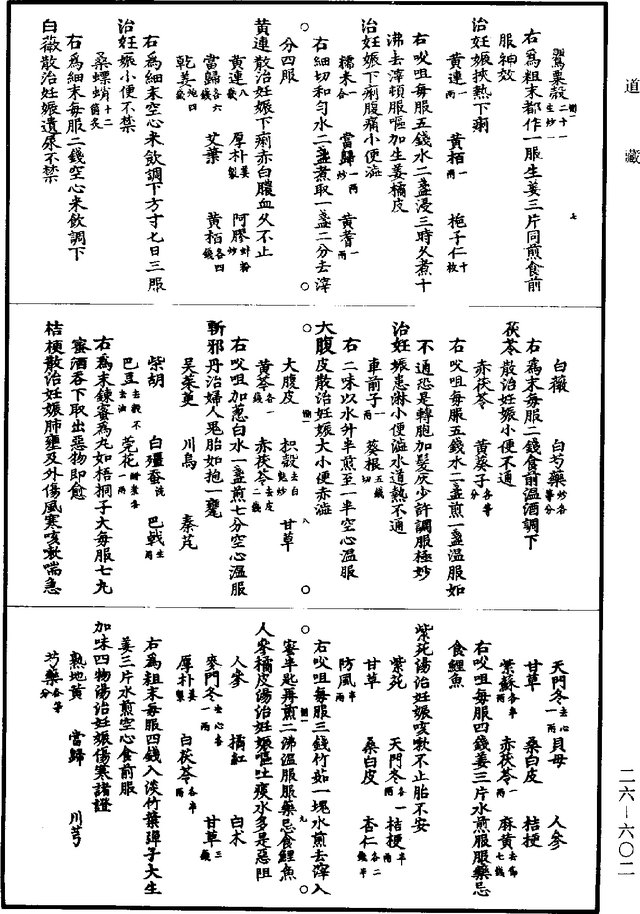 道藏
罌粟殼二十一生炒一
右爲粗末都作一服生姜三片同煎食前
服神效
治妊娠挾熱下痢
黄連一兩 黄栢一兩 梔子仁十枚
右㕮咀每服五錢水二盞浸三時久煮十
沸去滓頓服嘔加生姜橘皮
治妊娠下痢腹痛小便澁
糯米一合 當歸一兩炒 黄耆一兩
右細切和勻水二盞煮取一盞二分去滓
分四服
黄連散治妊娠下痢赤白膿血久不止
黄連八錢 厚朴姜製 阿膠蚌粉炒
當歸各六錢 艾葉 黄栢各四錢
乾姜炮四錢
右爲細末空心米飲調下方寸七日三服
治妊娠小便不禁
桑螵蛸十二箇炙
右爲細末每服二錢空心米飲調下
白薇散治妊娠遺尿不禁
七
白薇 白芍藥炒各等分
右爲末每服二錢食前溫酒調下
茯苓散治妊娠小便不通
赤茯苓 黄葵子各等分
右㕮咀每服五錢水二盞煎一盞溫服如
不通恐是轉胞加髮灰少許調服極妙
治妊娠患淋小便澁水道熱不通
車前子一兩 葵根五錢切
右二味以水升半煎至一半空心溫服
大腹皮散治妊娠大小便赤澁
大腹皮 枳殼去白麩炒 甘草
黄芩各一錢 赤茯苓去皮二錢
右㕮咀加葱白水一盞煎七分空心溫服
斬邪丹治婦人鬼胎如抱一甕
吴茱萸 川烏 秦艽
柴胡 白殭蚕洗 巴戟生用
巴豆去殼不去油 芫花醋煮各一兩
右爲末鍊蜜爲丸如梧桐子大每服七丸
蜜酒吞下取出惡物即愈
桔梗散治妊娠肺壅及外傷風寒咳嗽喘急
八
天門冬去心一兩 貝母 人參
甘草 桑白皮 桔梗
紫蘇各半兩 赤茯苓一兩 麻黄去節七錢
右㕮咀每服四錢姜三片水煎服服藥忌
食鯉魚
紫菀湯治妊娠咳嗽不止胎不安
紫菀 天門冬各一兩 桔梗半兩
甘草 桑白皮 杏仁各二錢半
防風半兩
右㕮咀每服三錢竹茹一塊水煎去滓入
蜜半匙再煎二沸溫服服藥忌食鯉魚
人參橘皮湯治妊娠嘔吐痰水多是惡阻
人參 橘紅 白术
麥門冬去心各一兩 甘草三錢
厚朴姜製 白茯苓各半兩
右爲粗末每服四錢入淡竹葉彈子大生
姜三片水煎空心食前服
加味四物湯治妊娠傷寒諸證
熟地黄 當歸 川芎
芍藥各等分
九
二六—六〇二